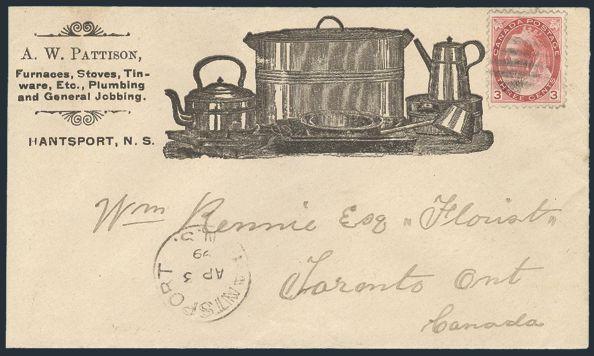 A. W. PATTISON,
Furnaces, Stoves, Tin-
ware, Etc., Plumbing
and General Jobbing.
HANTSPORT, N. S.
CANADA POSTAGE
THREE CENTS
3 3
Wm Rennie Esq "Florist"
Toronto Ont
Canada
HANTSPORT N.S.
AP 3
99